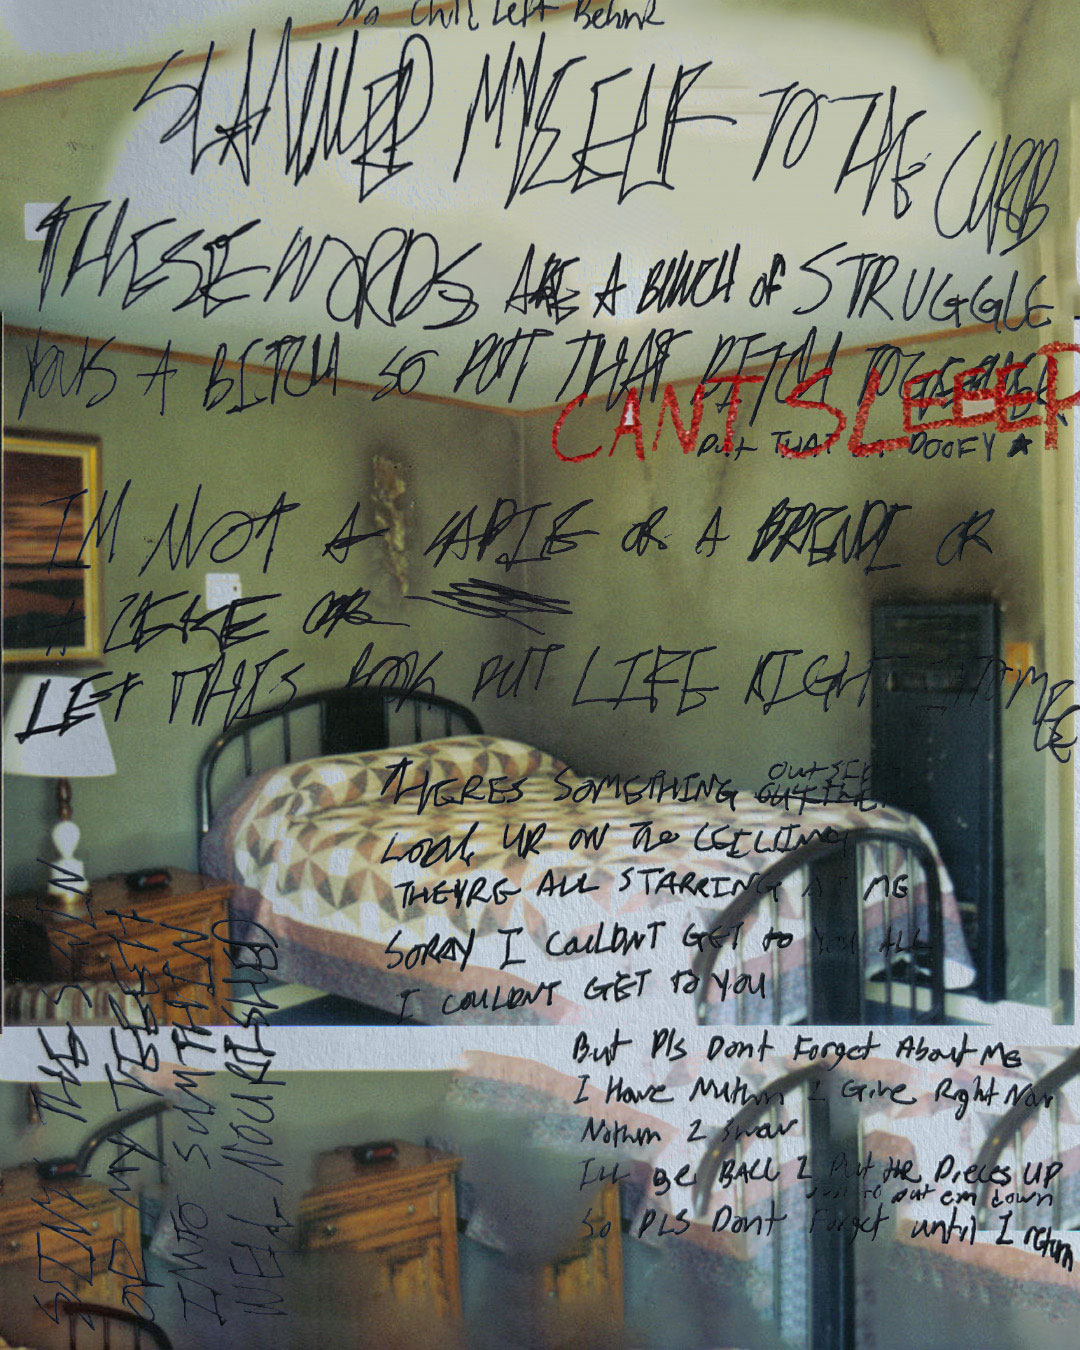 No Child Left Behind
SLAMMED MYSELF TO THE CURB
THESE WORDS ARE A BUNCH OF STRUGGLE
YOUS A BITCH SO PUT THAT BITCH TOGETHER
CANT SLEEEP
PUT THAT DOOFY
IM NOT A OR A OR
A OR
LET THAT PUT LIFE RIGHT ME
THERES SOMETHING OUTSIDE
LOOK UP ON THE CEILING
THEYRE ALL STARRING AT ME
SORRY I COULDNT GET to YOU ALL
I COULDNT GET TO YOU
But Pls Dont Forget About Me
I Have Nuthin 2 Give Right Now
Nothin 2 Swear
Ill BE BACC 2 Put the Pieces UP
Just to put em down
So PLS Dont Forget until I return
SINK THE SKIN
OF MY TEETH
INTO SUMTHIN
WELL NOURISHED